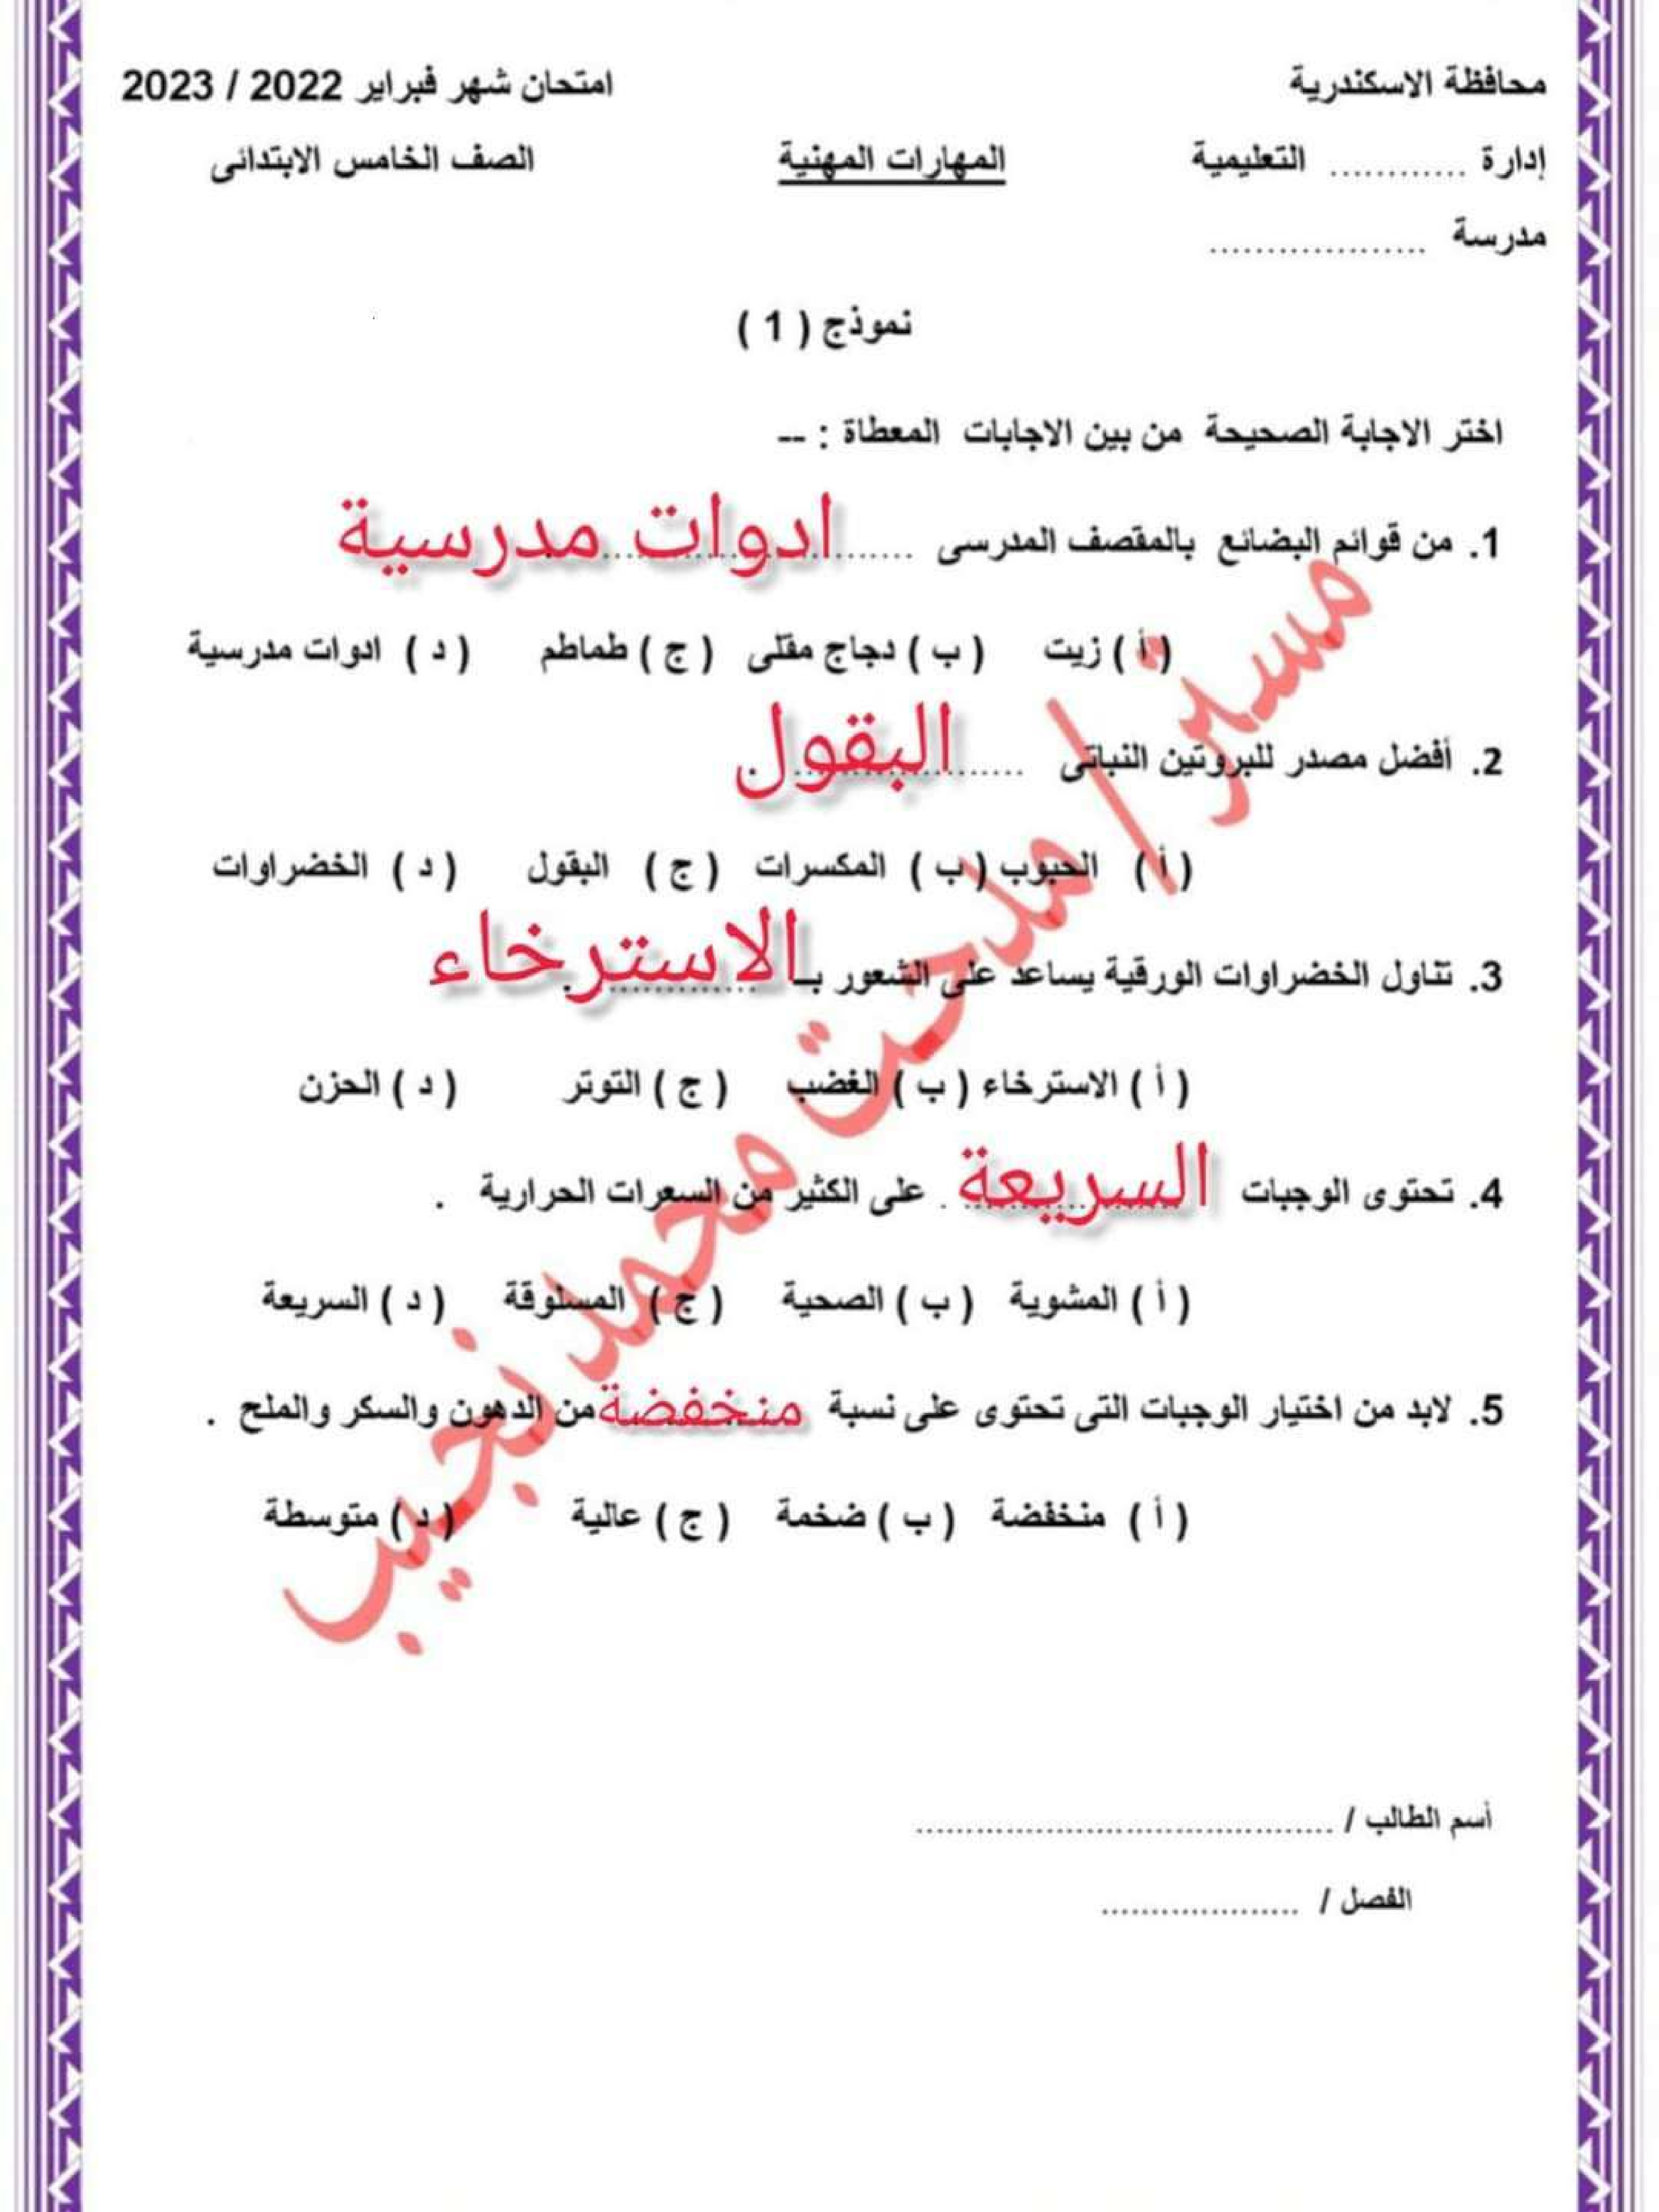 محافظة الاسكندرية امتحان شهر فبراير 2022 / 2023
إدارة ............ التعليمية المهارات المهنية الصف الخامس الابتدائى
مدرسة ...................
نموذج ( 1 )
اختر الاجابة الصحيحة من بين الاجابات المعطاة : --
1. من قوائم البضائع بالمقصف المدرسى ....... ادوات مدرسية
( أ ) زيت ( ب ) دجاج مقلى ( ج ) طماطم ( د ) ادوات مدرسية
2. أفضل مصدر للبروتين النباتى ...... البقول
( أ ) الحبوب ( ب ) المكسرات ( ج ) البقول ( د ) الخضراوات
3. تناول الخضراوات الورقية يساعد على الشعور بـ الاسترخاء .
( أ ) الاسترخاء ( ب ) الغضب ( ج ) التوتر ( د ) الحزن
4. تحتوى الوجبات السريعة . على الكثير من السعرات الحرارية .
( أ ) المشوية ( ب ) الصحية ( ج ) المسلوقة ( د ) السريعة
5. لابد من اختيار الوجبات التى تحتوى على نسبة منخفضة من الدهون والسكر والملح .
( أ ) منخفضة ( ب ) ضخمة ( ج ) عالية ( د ) متوسطة
مستر / مدحت محمد نجيب
أسم الطالب / ..........................................
الفصل / ....................